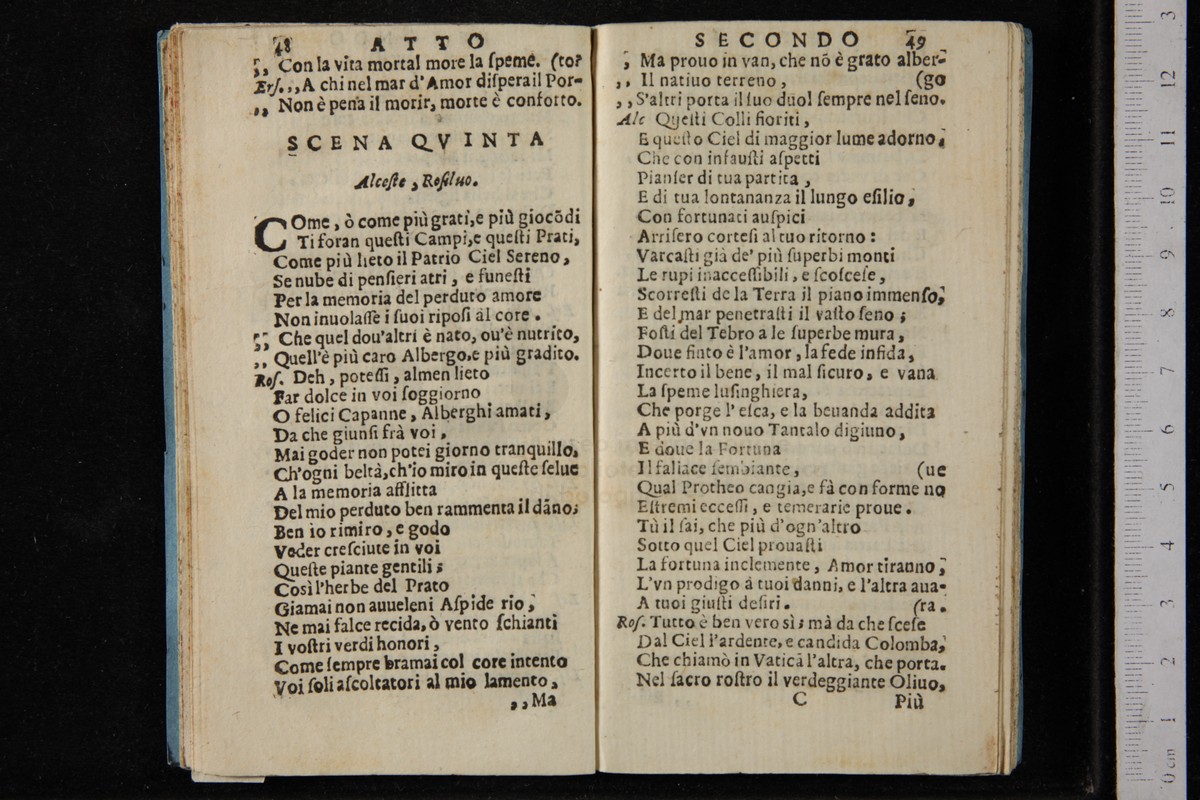 48 ATTO
,, Con la vita mortal more la ſpeme. (to?
Erſ. ,, A chi nel mar d'Amor diſpera il Por-
,, Non è pena il morir, morte è conforto.
SCENA QVINTA
Alceſte, Roſiluo.
COme, ò come più grati, e più giocōdi
Ti foran queſti Campi, e queſti Prati,
Come più lieto il Patrio Ciel Sereno,
Se nube di penſieri atri, e funeſti
Per la memoria del perduto amore
Non inuolaſſe i ſuoi ripoſi al core.
,, Che quel dou'altri è nato, ou'è nutrito,
,, Quell'è più caro Albergo, e più gradito.
Roſ. Deh, poteſſi, almen lieto
Far dolce in voi ſoggiorno
O felici Capanne, Alberghi amati,
Da che giunſi frà voi,
Mai goder non potei giorno tranquillo,
Ch'ogni beltà, ch'io miro in queſte ſelue
A la memoria afflitta
Del mio perduto ben rammenta il dāno;
Ben io rimiro, e godo
Veder creſciute in voi
Queſte piante gentili;
Così l'herbe del Prato
Giamai non auueleni Aſpide rio,
Ne mai falce recida, ò vento ſchianti
I voſtri verdi honori,
Come ſempre bramai col core intento
Voi ſoli aſcoltatori al mio lamento,
,, Ma
SECONDO 49
, Ma prouo in van, che nō è grato alber-
,, Il natiuo terreno, (go
,, S'altri porta il ſuo duol ſempre nel ſeno.
Alc Queſti Colli fioriti,
E queſto Ciel di maggior lume adorno,
Che con infauſti aſpetti
Pianſer di tua partita,
E di tua lontananza il lungo eſilio,
Con fortunati auſpici
Arriſero corteſi al tuo ritorno:
Varcaſti già de' più ſuperbi monti
Le rupi inacceſſibili, e ſcoſceſe,
Scorreſti de la Terra il piano immenſo,
E del mar penetraſti il vaſto ſeno;
Foſti del Tebro a le ſuperbe mura,
Doue finto è l'amor, la fede infida,
Incerto il bene, il mal ſicuro, e vana
La ſpeme luſinghiera,
Che porge l'eſca, e la beuanda addita
A più d'vn nouo Tantalo digiuno,
E doue la Fortuna
Il fallace ſembiante, (ue
Qual Protheo cangia, e fà con forme no
Eſtremi ecceſſi, e temerarie proue.
Tù il ſai, che più d'ogn'altro
Sotto quel Ciel prouaſti
La fortuna inclemente, Amor tiranno,
L'vn prodigo à tuoi danni, e l'altra aua-
A tuoi giuſti deſiri. (ra.
Roſ. Tutto è ben vero sì; mà da che ſceſe
Dal Ciel l'ardente, e candida Colomba,
Che chiamò in Vaticā l'altra, che porta.
Nel ſacro roſtro il verdeggiante Oliuo,
C Più
0 cm 1 2 3 4 5 6 7 8 9 10 11 12 13